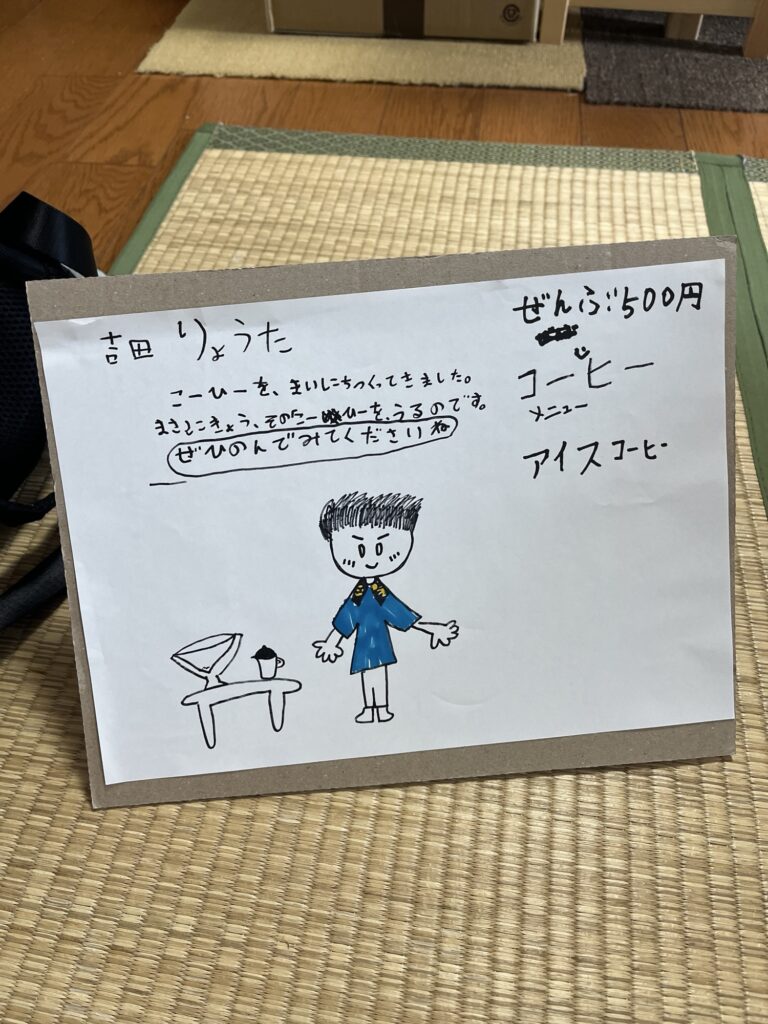 吉田 りょうた
こーひーを、まいにちつくってきました。
まさにきょう、そのこーひーを、うるのです。
ぜひのんでみてくださいね
ぜんぶ500円
コーヒー
メニュー
アイスコーヒー